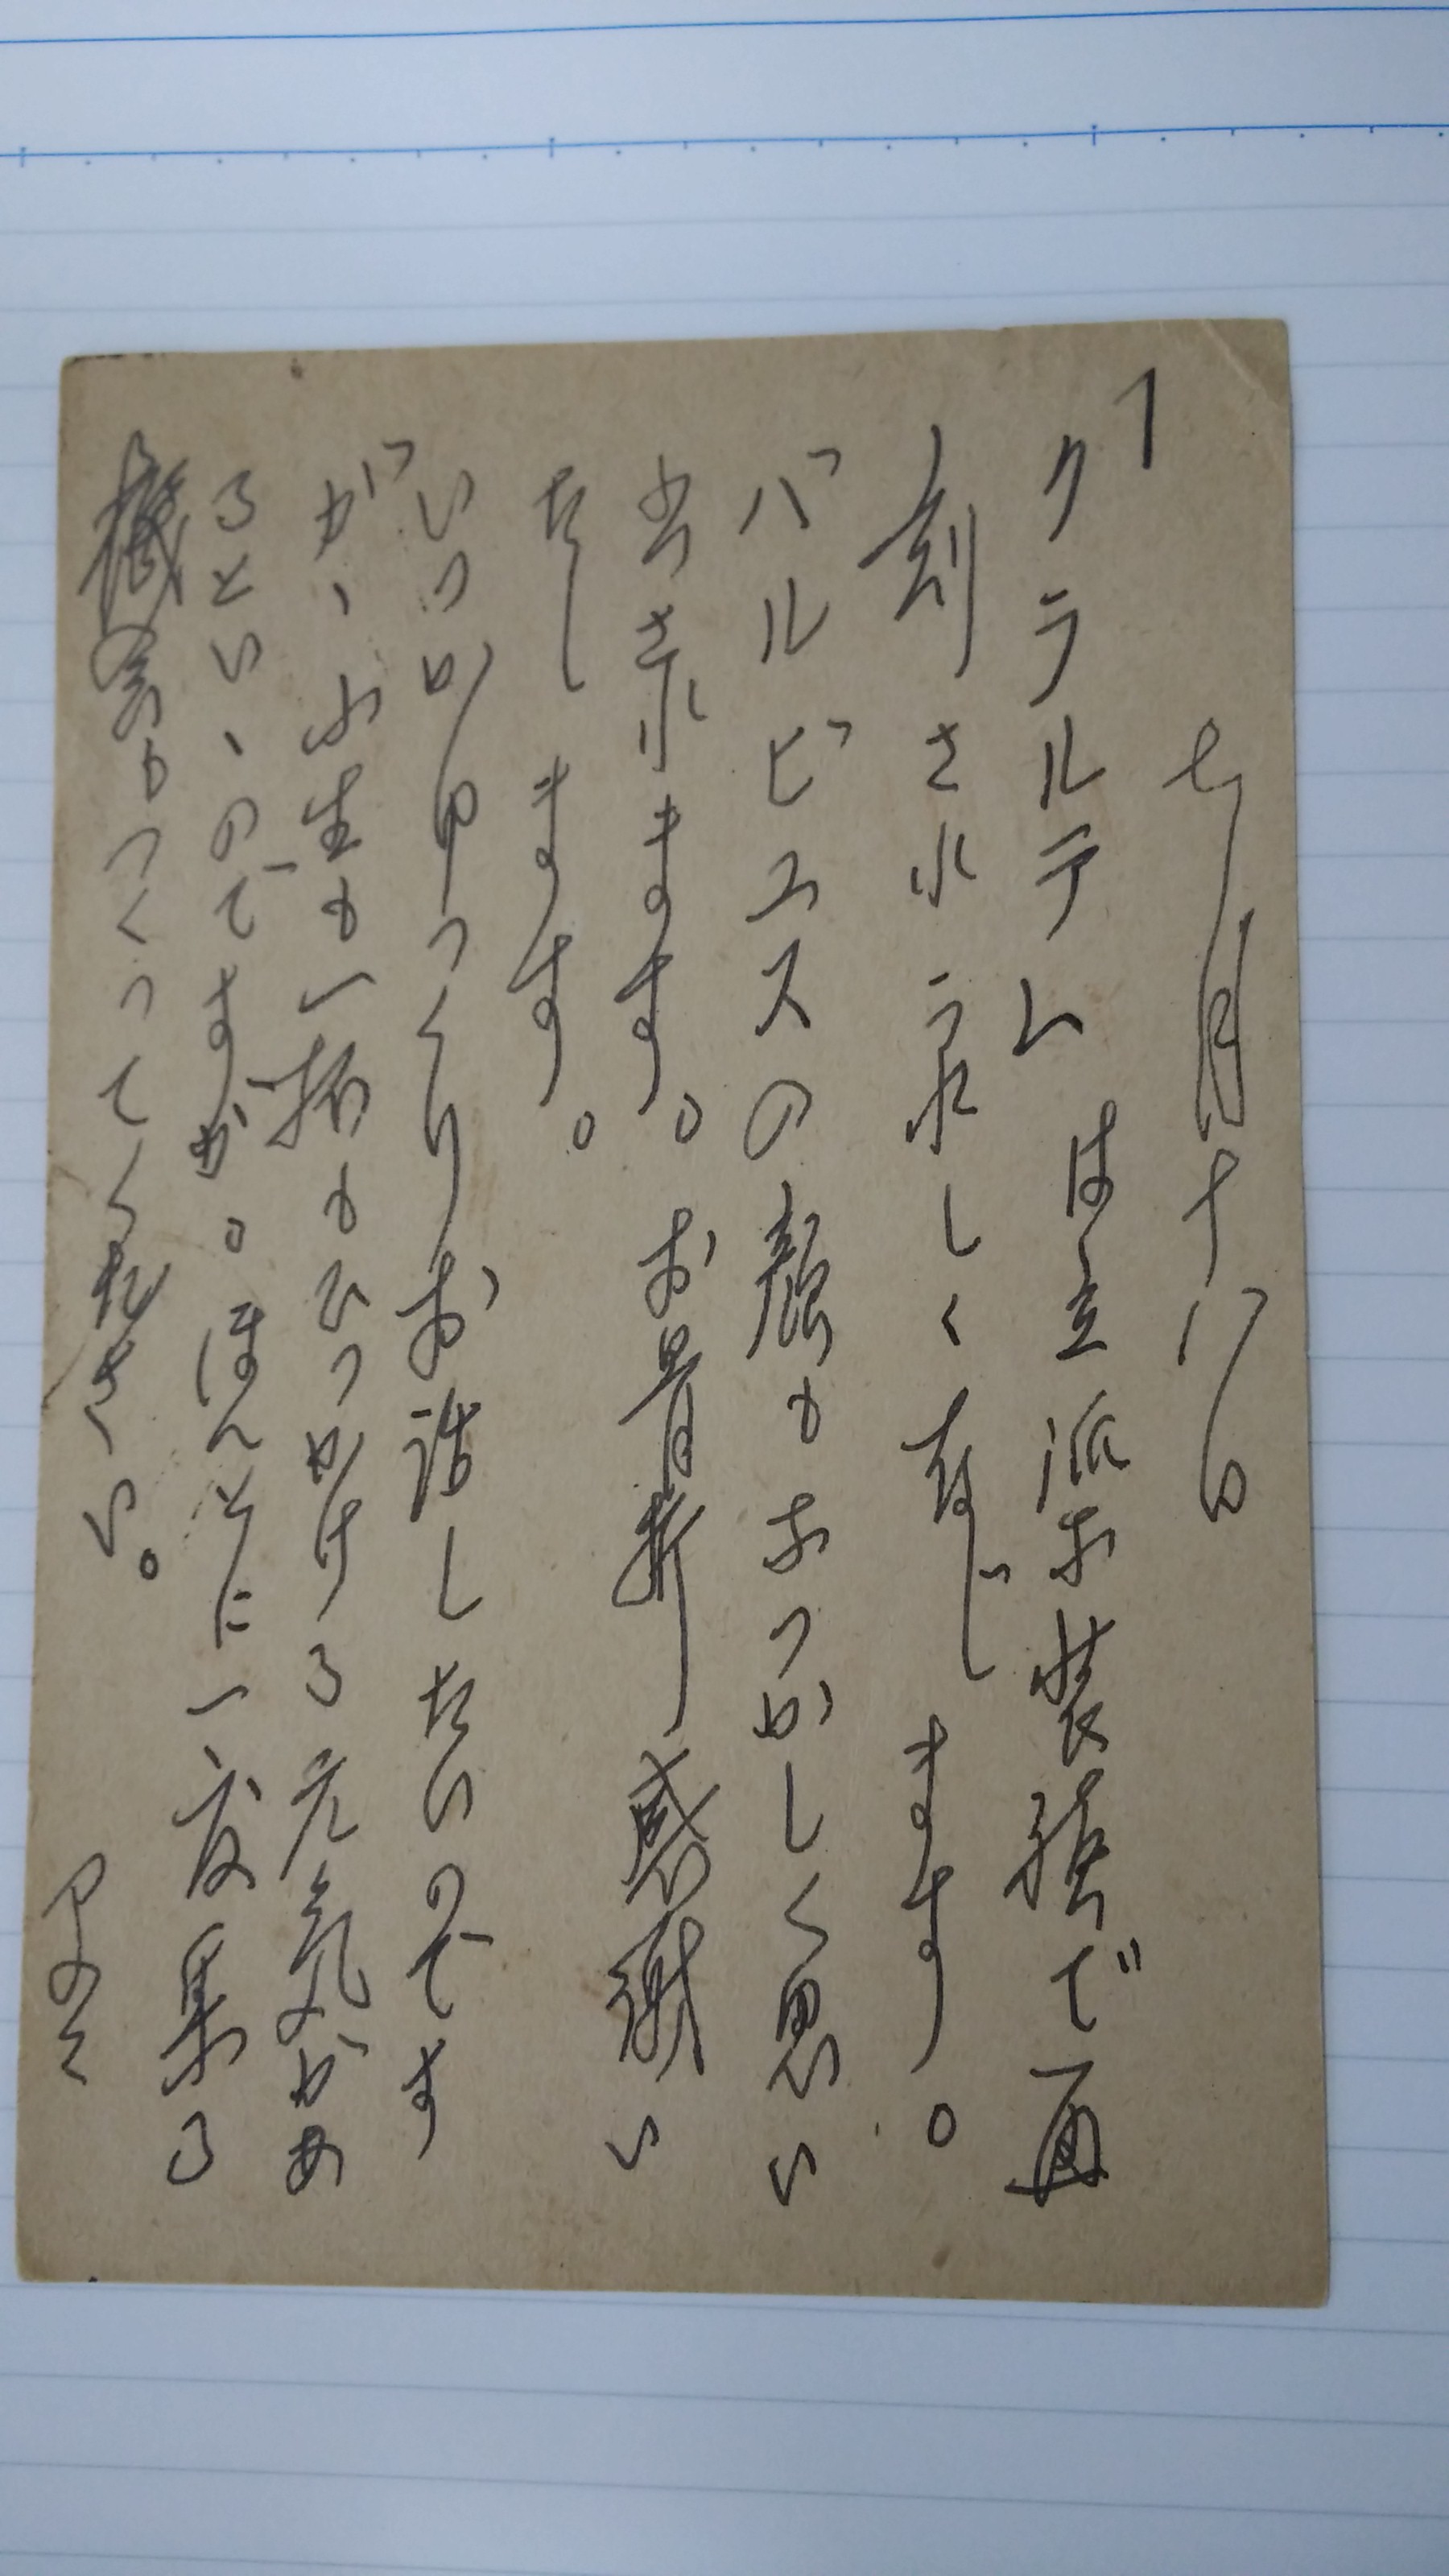 1
七月十八日
クラルテ は立派な装幀で再
刻されうれしく存じます。
バルビュスの顔もなつかしく思い
出されます。お骨折感謝い
たします。
いつかゆっくりお話したいのです
が、小生も一杯もひっかける元気があ
るといゝのですが。ほんとに一度集る
機会もつくってください。
早々